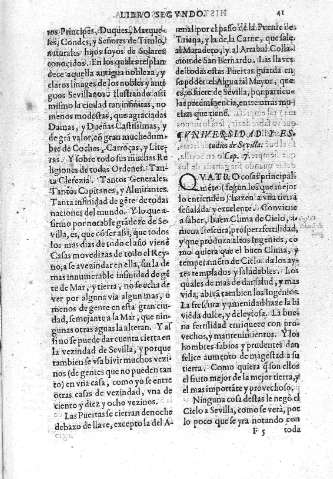 LIBRO SEGVNDO.
41
ros Principes, Duques, Marque-
ses, Condes, y Señores de Titulo,
naturales hijos suyos de Solares
conocidos. En los quales resplan-
dece aquella antigua nobleza, y
claros images de los nobles y anti-
guos Sevillanos. Ilustrando assi
mismo la ciudad tan insignes, no
menos modestas, que agraciadas
Damas, y Dueñas Castissimas, y
de grã valor, cõ gran muchedum-
bre de Coches, Carroças, y Lite-
ras. Y sobre todo sus muchas Re-
ligiones de todas Ordenes. Tan-
ta Clerezia. Tantos Generales.
Tantos Capitanes, y Almirantes.
Tanta infinidad de gẽte de todas
naciones del mundo. Y lo que a-
firmo por notable grãde de Se-
villa, es, que cõ ser assi, que todos
los mas dias de todo el año viene
Casas movedizas de todo el Rey-
no, a se avezindar en ella, sin la de
mas innumerable infinidad de gẽ
te de Mar, y tierra, no se echa de
ver por alguna via algun mas, o
menos de gente en esta gran ciu-
dad, semejante a la Mar, que nin-
gunas otras aguas la alteran. Y as
si no se puede dar cuenta cierta en
la vezindad de Sevilla, y porque
tambien se vsa bivir muchos vezi-
nos (de gentes que no pueden tan
to) en vna casa, como ya se entre
otras casas de vezindad, vna de
ciento y diez y ocho vezinos.
Las Puertas se cierran de noche
debazo de llave, excepto la del A-
renal por el passo de la Puente de
Triana, y la de la Carne, que sale
al Matadero, y al Arrabal Colla-
cion de San Bernardo. Las llaves
de todas estas Puertas guarda en
su poder el Alguazil Mayor, que
es, o fuere de Sevilla, por particu-
lar preeminencia, entre otras mu-
chas que tiene.
VNIVERSIDAD I ES-
tudios de Sevilla.
Cap. 7.
QVATRO cosas principal-
mẽte (segun los que mejor
lo entienden) hazen a vna tierra
señalada y excelente. Conviene
a saber, buen Clima de Cielo, a-
mena, prospera fertilidad,
y que produzca altos Ingenios, co
mo quiera que el bien Clima, y
temperamento de Cielo da los ay-
res templados y saludables. Los
quales de mas de dar salud, y mas
vida, abivã tambien los ingenios.
La frescura y amenidad haze la bi
viẽda dulce, y deleytosa. La bue-
na fertilidad enriquece con pro-
vechos, y mantenimientos. Y los
hombres sabios y prudentes dan
felice aumento de magestad a su
tierra. Como quiera q̃ son ellos
el fruto mejor de la mejor tierra, y
el mas importãte y provechoso.
Ninguna cosa destas le negò el
Cielo a Sevilla, como se verà, por
lo poco que se yra notando con
F 5 toda